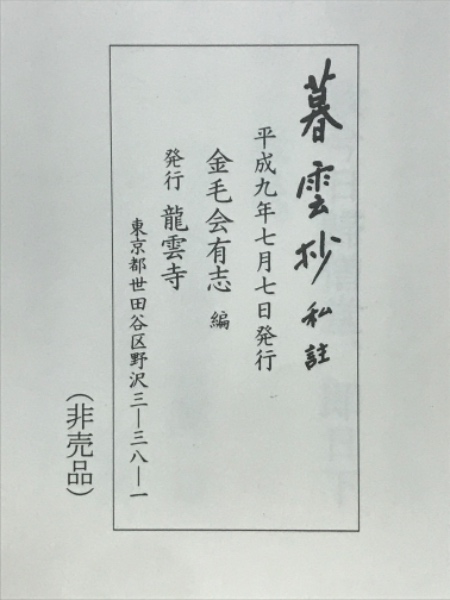 暮雲抄 私註
平成九年七月七日発行
金毛会有志 編
発行 龍雲寺
東京都世田谷区野沢三―三八―一
（非売品）